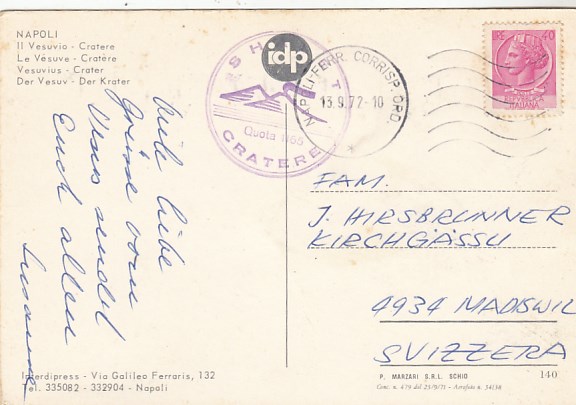 NAPOLI
Il Vesuvio - Cratere
Le Vésuve - Cratère
Vesuvius - Crater
Der Vesuv - Der Krater
idp
CRATERE
NAPOLI-FERR. CORRISP. ORD
13.9.72-10
LIRE 40
ITALIANA
Viele liebe
Grüsse vom
Vesuv sendet
Euch allen
Susanne
FAM.
J. HIRSBRUNNER
KIRCHGÄSSLI
4934 MADISWIL
SVIZZERA
Interdipress - Via Galileo Ferraris, 132
Tel. 335082 - 332904 - Napoli
P. MARZARI S.R.L. SCHIO
140
Conc. n. 479 del 23/9/71 - Aerofoto n. 34158